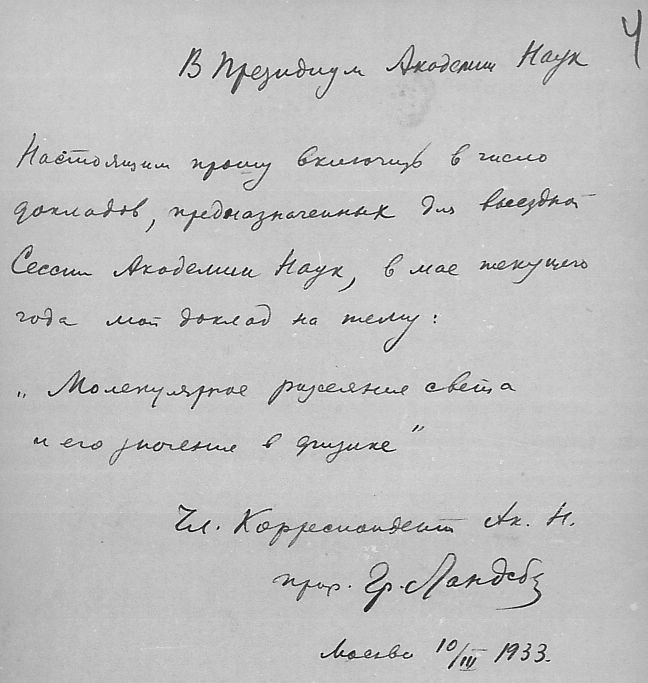 4
В Президиум Академии Наук
Настоящим прошу включить в число
докладов, предназначенных для выездной
Сессии Академии Наук, в мае текущего
года мой доклад на тему:
„Молекулярное рассеяние света
и его значение в физике"
Чл. Корреспондент Ак. Н.
проф. Гр. Ландсб
Москва 10/III 1933.